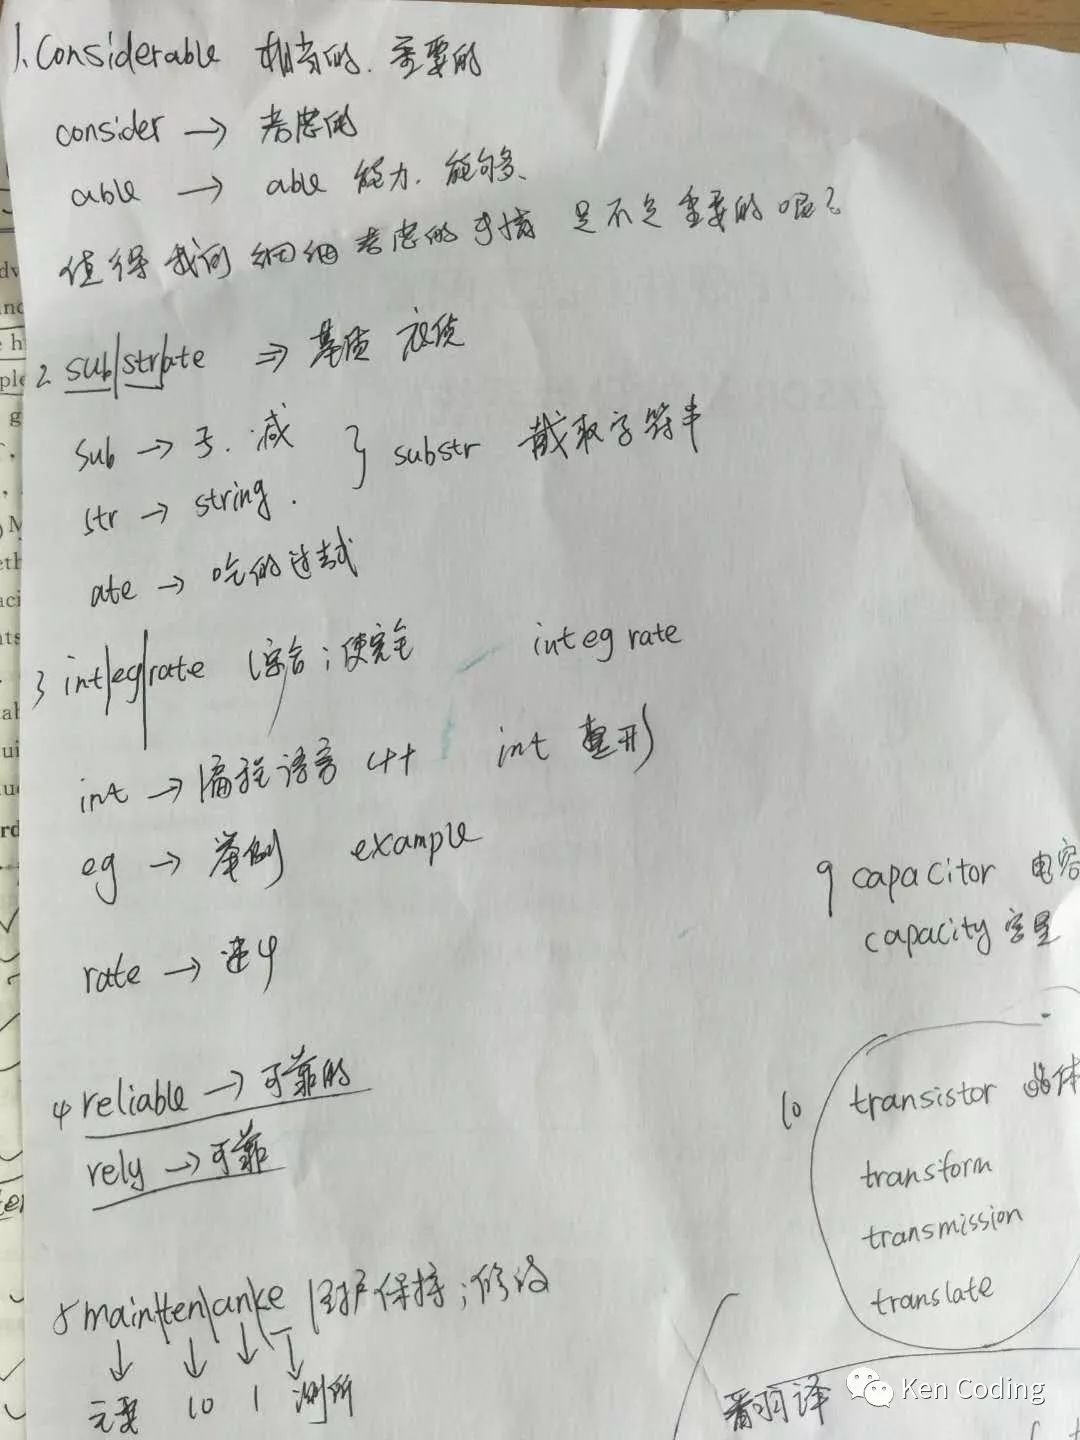 1. Considerable 相当的、重要的
consider → 考虑的
able → able 能力、能够、
值得我们细细考虑的事情 是不是重要的呢?
2 sub/str/ate ⇒ 基质
sub → 子、减 } substr 截取字符串
str → string.
ate → 吃的过去式
3 int/eg/rate 综合;使完全 integrate
int → 编程语言 C++ int 整形
eg → 举例 example
rate → 速率
4 reliable → 可靠的
rely → 可靠
5 main/ten/an/ce 维护保持;修
↓ ↓ ↓ ↓
主要 10 1 测所
9 capacitor 电容
capacity 容量
10 transistor 晶体
transform
transmission
translate
翻译
Ken Coding